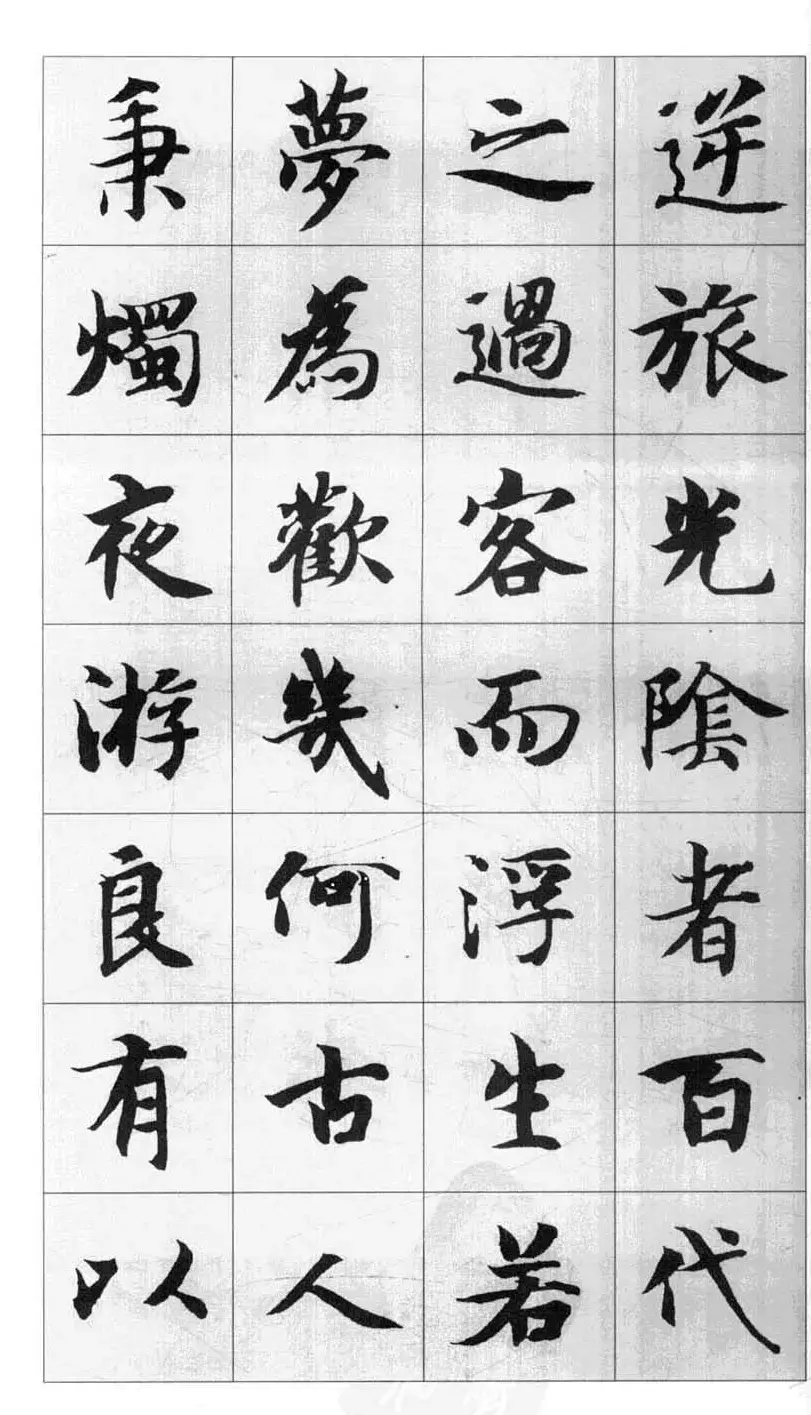 逆旅光陰者百代
之過客而浮生若
夢為歡幾何古人
秉燭夜游良有以